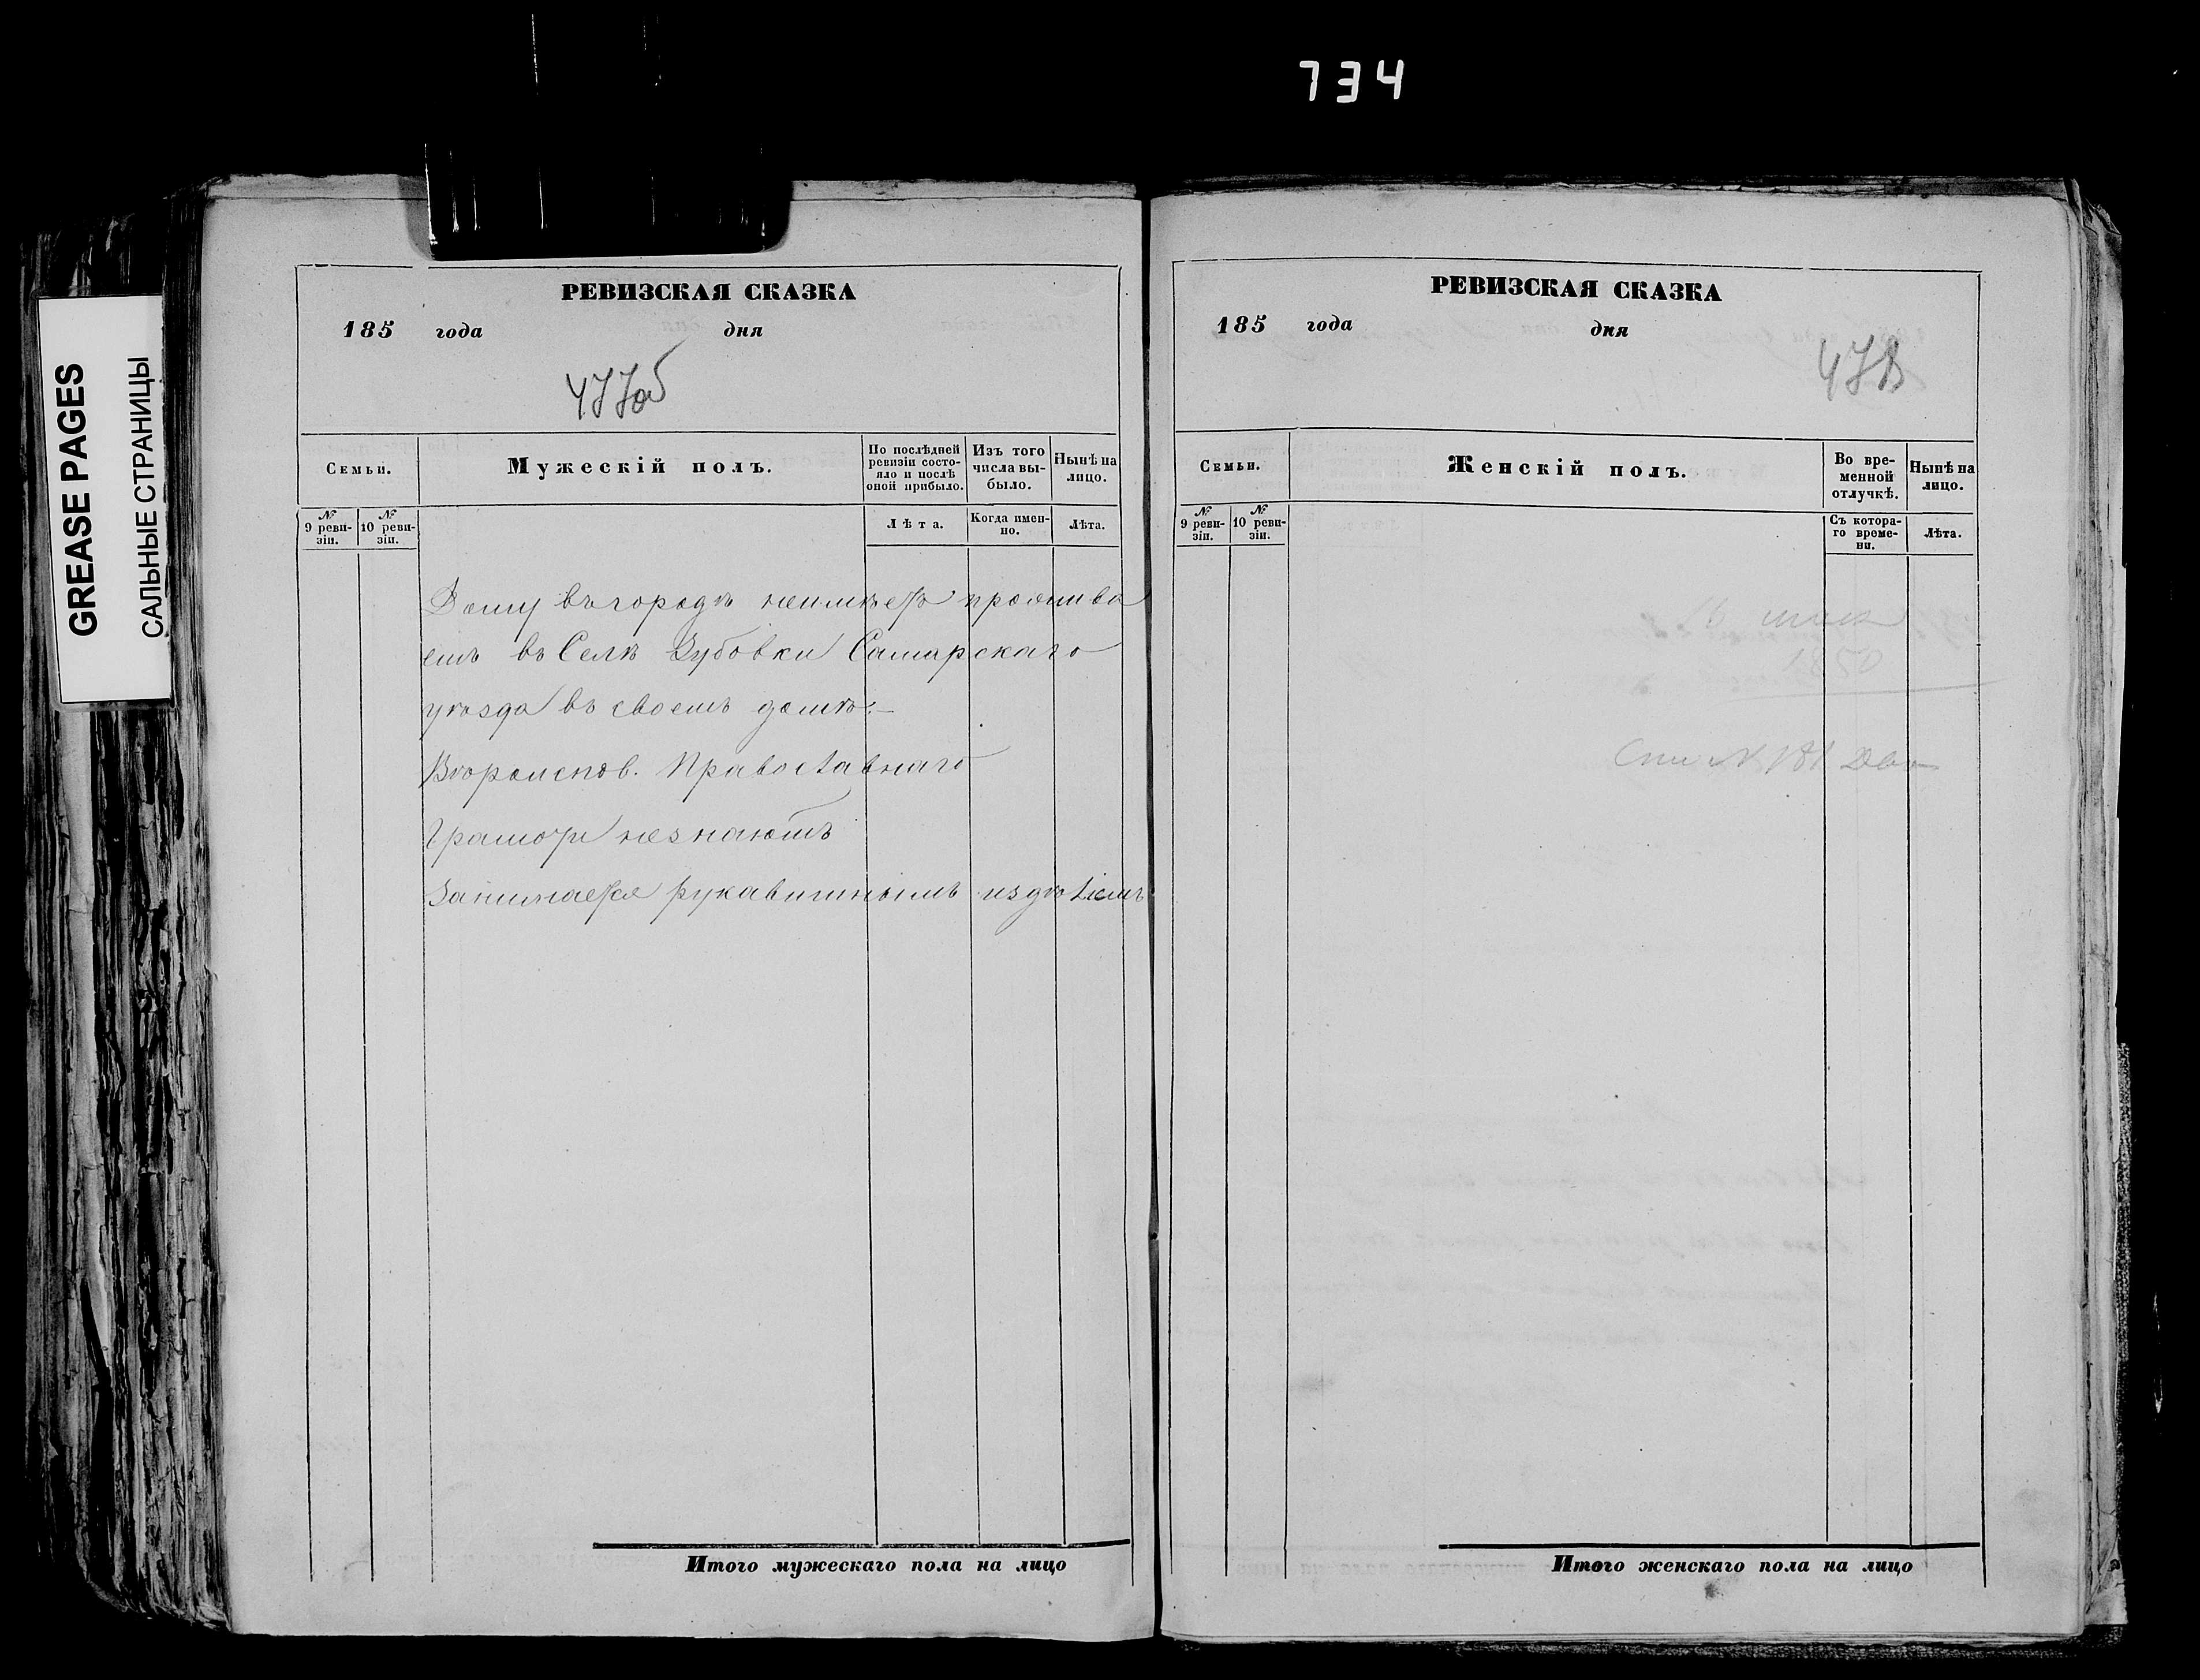 734
GREASE PAGES
САЛЬНЫЕ СТРАНИЦЫ
РЕВИЗСКАЯ СКАЗКА
185 года дня
477об
Семьи.
Мужескій полъ.
По послѣдней ревизіи состо-
яло и послѣ
оной прибыло.
Изъ того
числа вы-
было.
Нынѣ на
лицо.
№
9 реви-
зіи.
№
10 реви-
зіи.
Лѣта.
Когда имен-
но.
Лѣта.
Дому въ городѣ неимѣетъ прожива
етъ въ Селѣ Зубовки Самарскаго
уѣзда въ своемъ домѣ.—
Вѣроиспов. Православнаго
Грамоти незнаютъ
Занимается рукавишнымъ издѣліемъ
Итого мужескаго пола на лицо
РЕВИЗСКАЯ СКАЗКА
185 года дня
478
Семьи.
Женскій полъ.
Во вре-
менной
отлучкѣ.
Нынѣ на
лицо.
№
9 реви-
зіи.
№
10 реви-
зіи.
Съ котора-
го време-
ни.
Лѣта.
Итого женскаго пола на лицо